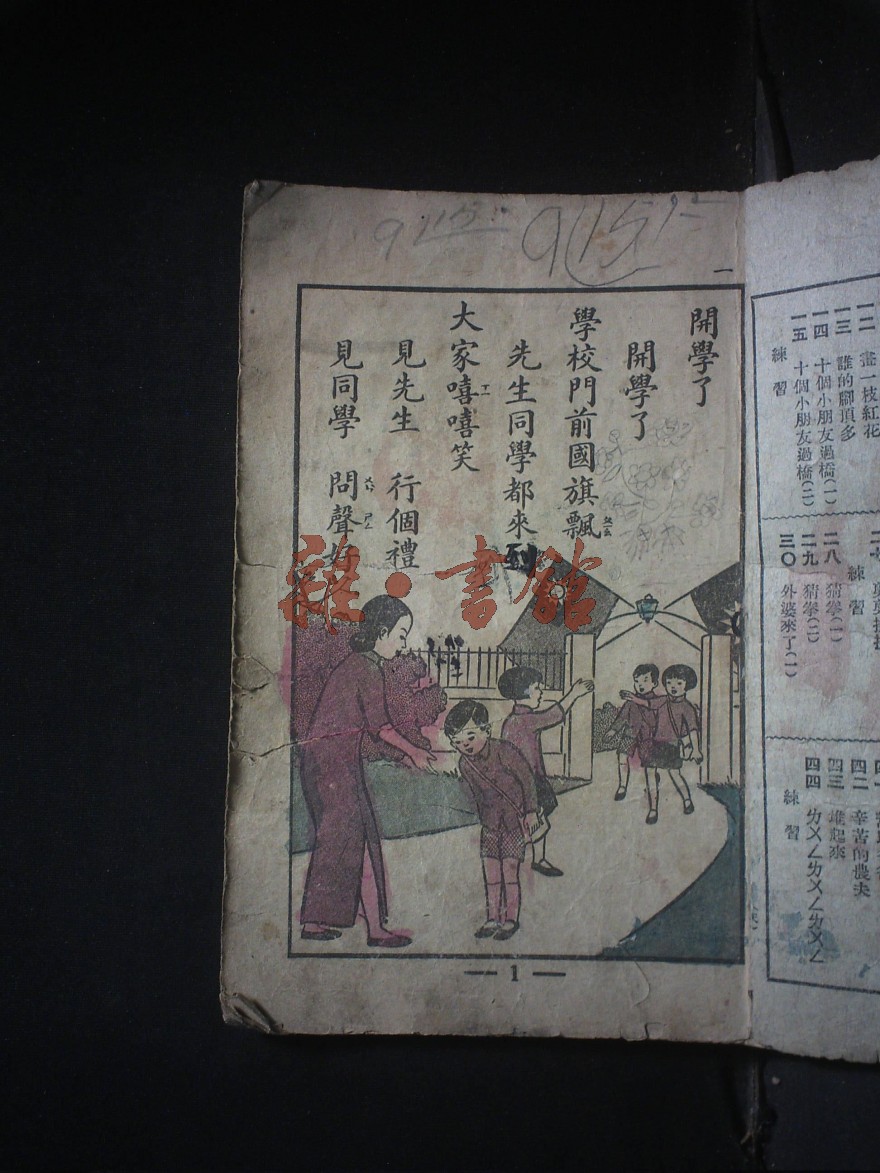 一
開學了
開學了
學校門前國旗飄
先生同學都來到
大家嘻嘻笑
見先生 行個禮
見同學 問聲好
雜·書館
— 1 —
一二 畫一枝紅花
一三 誰的腳頂多
一四 十個小朋友過橋(一)
一五 十個小朋友過橋(二)
練習
練習
二八 猜拳(一)
二九 猜拳(二)
三〇 外婆來了(一)
四二 辛苦的農夫
四三 堆起來
四四 ㄌㄨㄥㄌㄨㄥㄌㄨㄥ
練習